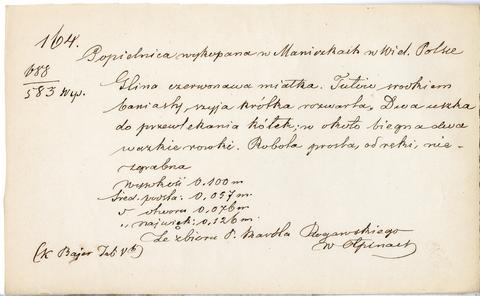 164.
Popielnica wykopana w Manieczkach w Wiel. Polsce
688
583 Wyk.
Glina czerwonawa miałka. Tułów środkiem
baniasty, szyja krótka rozwarta. Dwa uszka
do przewlekania kółek; w około biegną dwa
wązkie rowki. Robota prosta, od ręki, nie-
zgrabna
Wysokość 0.100 m
śred. posta: 0,057 m.
" otworu 0,076 m
" najwięk: 0,126 m.
Ze zbioru P. Karola Rogawskiego
w Ołpinach
(K Bajer Tab V)